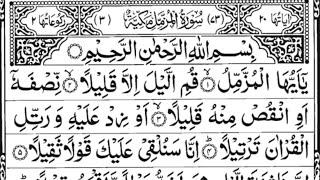 اٰیاتها ٢٠ (٧٣) سُوْرَةُ الْمُزَّمِّلِ مَكِّيَّةٌ (٣) رکوعاتها ٢
بِسْمِ اللّٰهِ الرَّحْمٰنِ الرَّحِيْمِ
يٰۤاَيُّهَا الْمُزَّمِّلُ ۙ۱ قُمِ الَّيْلَ اِلَّا قَلِيْلًا ۙ۲ نِّصْفَهٗۤ
اَوِ انْقُصْ مِنْهُ قَلِيْلًا ۙ۳ اَوْ زِدْ عَلَيْهِ وَ رَتِّلِ
الْقُرْاٰنَ تَرْتِيْلًا ؕ۴ اِنَّا سَنُلْقِيْ عَلَيْكَ قَوْلًا ثَقِيْلًا ۵